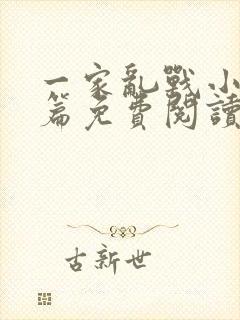 一家亂戰小
篇免費閱讀
古新世